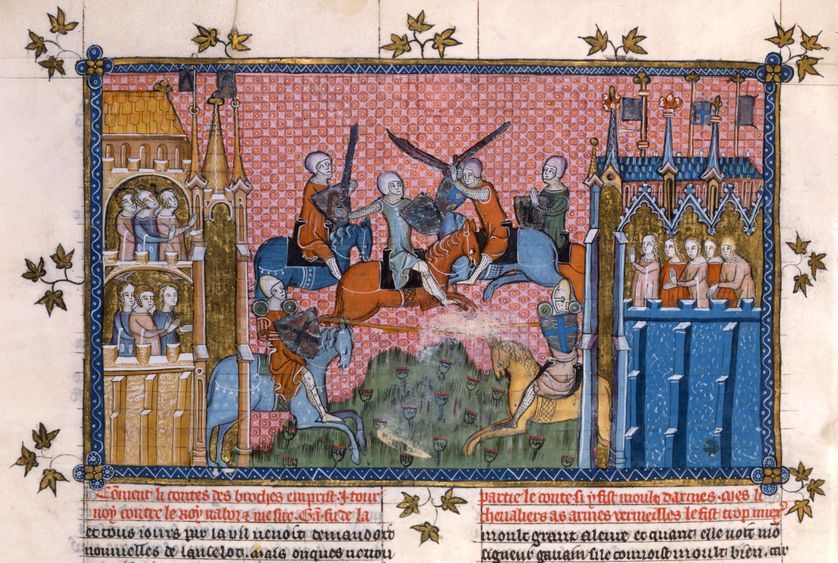 Cõment li contes des broches emprist .i. tour
noy contre le Roy nabor & mesire Ga. fu de la
et tous iours par la uenoit demandoit
nouuelles de lancelot. mais onques ne trou
partie le conte. si y fist moult darmes. mes li
cheualiers as armes vermeilles le fist trop
moult grant aleure et quant elle uoit mo
signeur gauain si le connoist moult bien. car